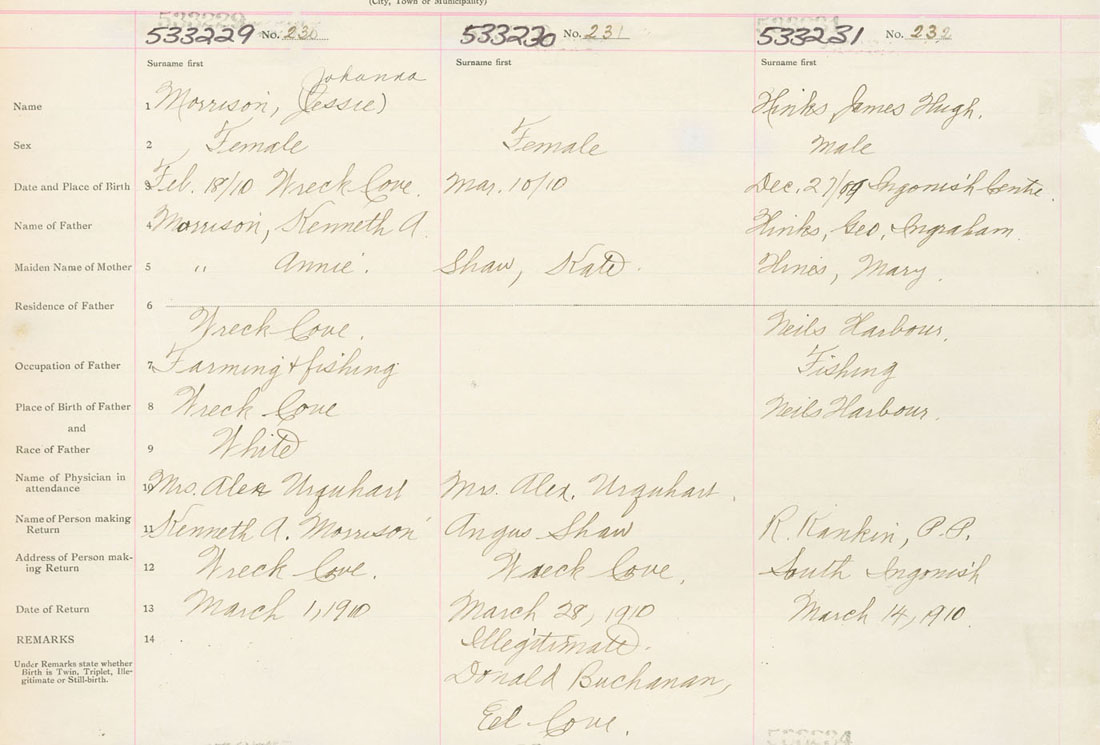 (City, Town or Municipality)
533229 No. 230 533230 No. 231 533231 No. 232
Surname first Surname first Surname first
Johanna
Name 1 Morrison, (Jessie) Hinks, James Hugh.
Sex 2 Female Female Male
Date and Place of Birth 3 Feb. 18/10 Wreck Cove. Mar. 10/10 Dec. 27/09 Ingonish Centre.
Name of Father 4 Morrison, Kenneth A. Hinks, Geo. Ingraham.
Maiden Name of Mother 5 " Annie. Shaw, Kate. Hines, Mary.
Residence of Father 6
Wreck Cove. Neils Harbour.
Occupation of Father 7 Farming & fishing Fishing
Place of Birth of Father 8 Wreck Cove Neils Harbour.
and
Race of Father 9 White
Name of Physician in
attendance 10 Mrs. Alex Urquhart Mrs. Alex. Urquhart.
Name of Person making
Return 11 Kenneth A. Morrison Angus Shaw R. Rankin, P.P.
Address of Person mak-
ing Return 12 Wreck Cove. Wreck Cove. South Ingonish
Date of Return 13 March 1, 1910 March 28, 1910 March 14, 1910.
REMARKS 14 Illegitimate.
Under Remarks state whether
Birth is Twin, Triplet, Ille-
gitimate or Still-birth.
Donald Buchanan,
Eel Cove.